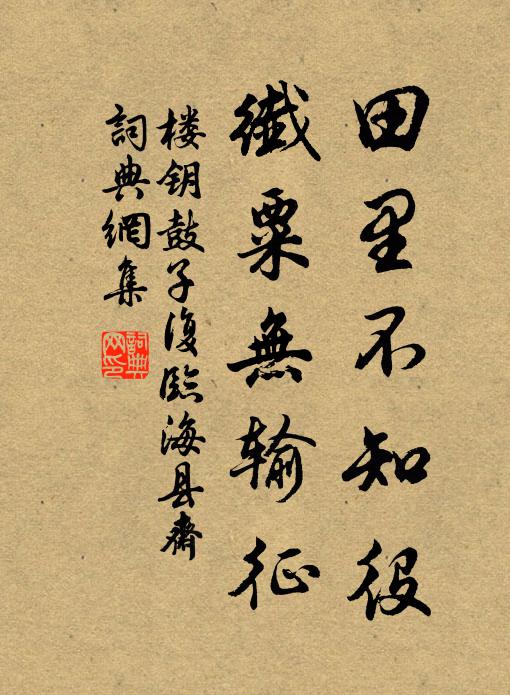 田里不知役
纖粟無输征
楼钥鼓子復臨海县齋
詞典網集
詞典网印